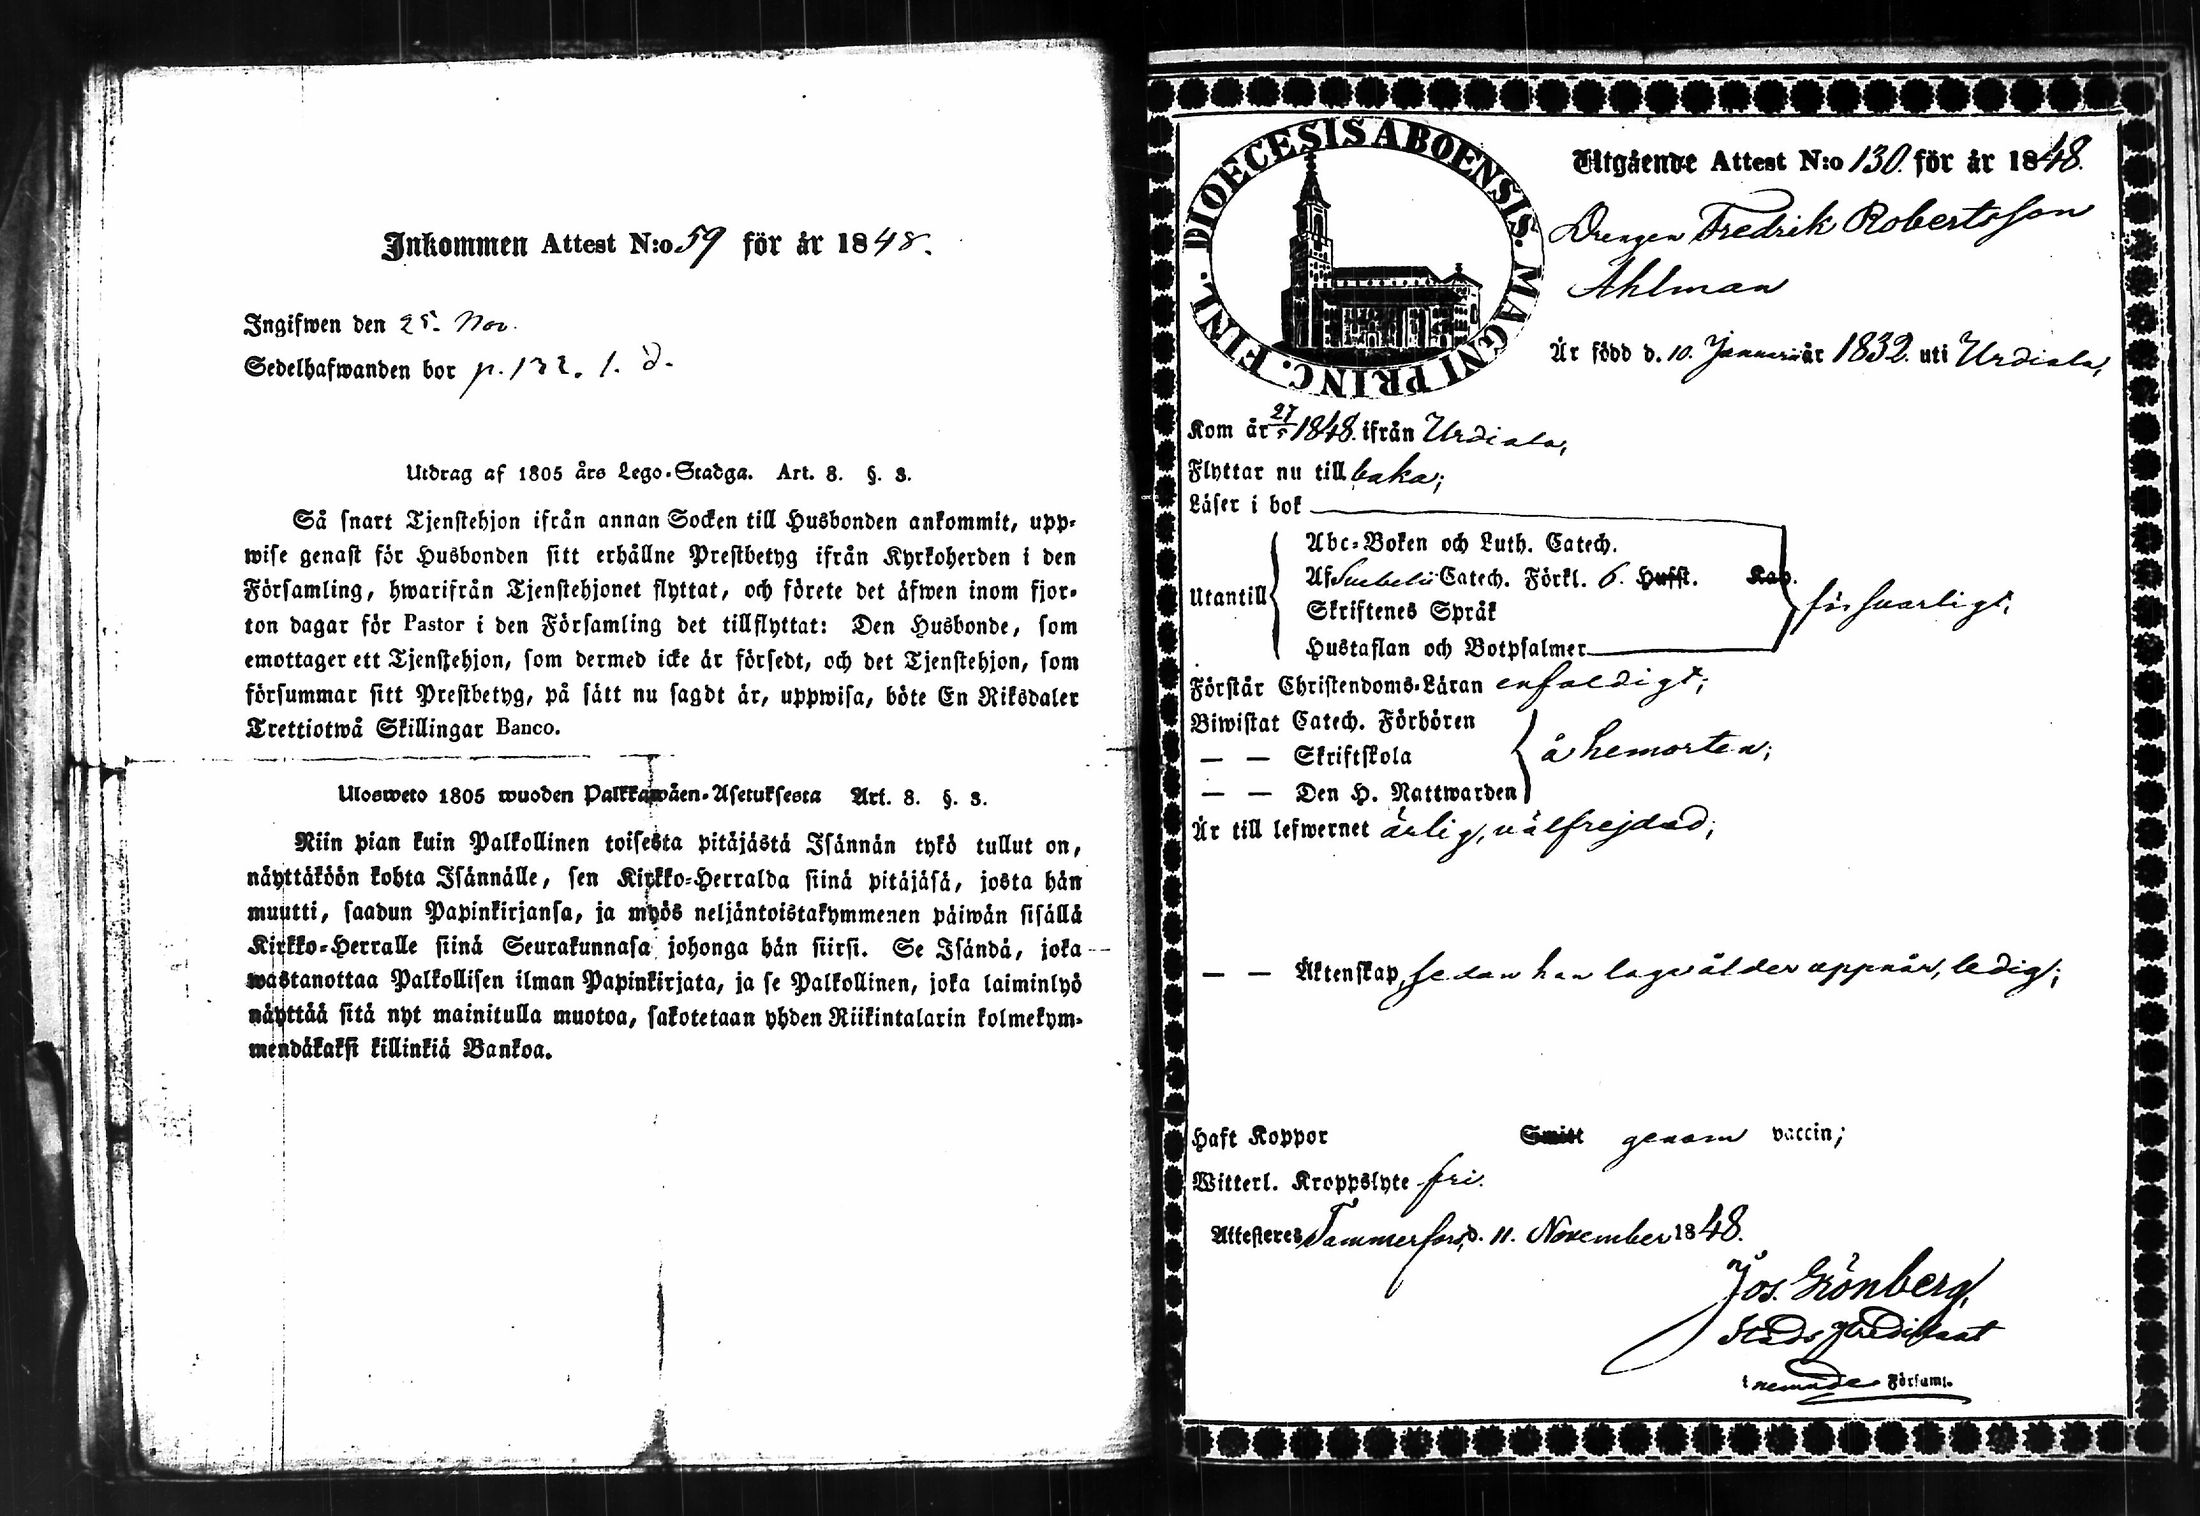 Inkommen Attest N:o 59 för år 1848.
Ingifwen den 25. Nov.
Sedelhafwanden bor p. 132. 1. d.
Utdrag af 1805 års Lego-Stadga. Art. 8. §. 3.
Så snart Tjenstehjon ifrån annan Socken till Husbonden ankommit, upp-
wise genast för Husbonden sitt erhållne Prestbetyg ifrån Kyrkoherden i den
Församling, hwarifrån Tjenstehjonet flyttat, och förete det äfwen inom fjor-
ton dagar för Pastor i den Församling det tillflyttat: Den Husbonde, som
emottager ett Tjenstehjon, som dermed icke är försedt, och det Tjenstehjon, som
försummar sitt Prestbetyg, på sätt nu sagdt är, uppwisa, böte En Riksdaler
Trettiotwå Skillingar Banco.
Ulosweto 1805 wuoden Palkkawäen-Asetuksesta Art. 8. §. 3.
Niin pian kuin Palkollinen toisesta pitäjästä Isännän tykö tullut on,
näyttäköön kohta Isännälle, sen Kirkko-Herralda siinä pitäjäsä, josta hän
muutti, saadun Papinkirjansa, ja myös neljäntoistakymmenen päiwän sisällä
Kirkko-Herralle siinä Seurakunnasa johonga hän siirsi. Se Isändä, joka
wastanottaa Palkollisen ilman Papinkirjata, ja se Palkollinen, joka laiminlyö
näyttää sitä nyt mainitulla muotoa, sakotetaan yhden Riikintalarin kolmekym-
mendäkaksi killinkiä Bankoa.
DIOECESIS ABOENSIS. MAGNI PRINC. FINL.
Utgående Attest N:o 130. för år 1848.
Drengen Fredrik Robertsson
Ahlman
Är född d. 10. Januarii år 1832. uti Urdiala,
Kom år 27/5 1848. ifrån Urdiala,
Flyttar nu till baka;
Läser i bok
Abc-Boken och Luth. Catech.
Af Svebelii Catech. Förkl. 6. Hufst. Kap.
Utantill
Skriftenes Språk
försvarligt;
Hustaflan och Botpsalmer
Förstår Christendoms-Läran enfaldigt;
Biwistat Catech. Förhören
— — Skriftskola
å hemorten;
— — Den H. Nattwarden
Är till lefwernet ärlig, välfrejdad;
— — Äktenskap, sedan han laga ålder uppnår, ledig;
Haft Koppor Smitt genom vaccin;
Witterl. Kroppslyte fri.
Attesteres Tammerfors, d. 11. November 1848.
Jos. Grönberg,
Stads Predikant
i nemnde Församl.